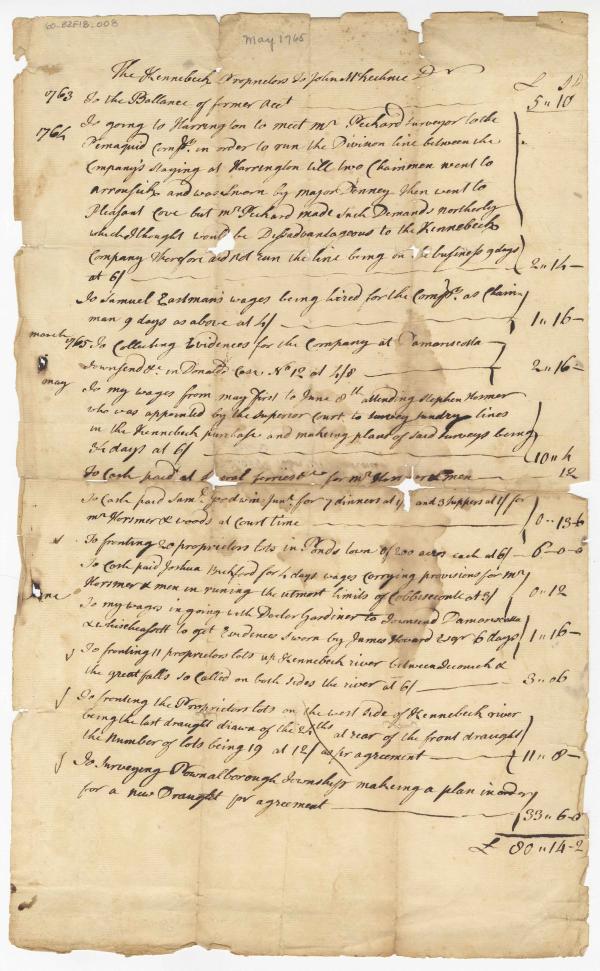 60-82F18-008
May 1765
The Kennebeck Proprietors To John McKechnie Dr
£ S D
1763 To the Ballance of former Acct 5 " 10
1764 To going to Harrington to meet mr Peckard Surveyor to the
Pemaquid Compy. in order to run the Division line between the
Company's staying at Harrington till two Chainmen went to
arrousick and was Sworn by major Denney then went to
Pleasant Cove but mr Peckard made Such Demands northerly
which I thought would be Dissadvantageous to the Kennebeck
Company therefore did not run the line being on the business 9 days
at 6/ 2 " 14 -
To Samuel Eastman's wages being hired for the Compy. as Chain
man 9 days as above at 4/ 1 " 16 -
march 1765 To Collecting Evidences for the Company at Damariscotta
Townsend &c in Donalds Case No 12 at 4/8 2 " 16 -
may To my wages from may first to June 8th attending Stephen Hosmer
who was appointed by the Superior Court to survey sundry lines
in the Kennebeck purchase and making plans of said surveys being
34 days at 6/ 10 " 4
To Cash paid at several ferries &c for mr Hosmer & men 12
To Cash paid Saml. Goodwin Junr. for 7 dinners at 1/ and 3 suppers at 1/ for
mr Horsmer & woods at Court time 0 " 13-6
To fronting 20 proprietors lots in Ponds town of 200 acres each at 6/ 6-0-0
To Cash paid Joshua Bickford for 4 days wages Carrying provisions for mr
Horsmer & men in running the utmost limits of Cobbiseconte at 3/ 0 " 12
June To my wages in going with Doctor Gardiner to Townsend Damariscotta
& whiscasett to get Evidences sworn by James Howard Esqr 6 days 1 " 16 -
To fronting 11 proprietors lots up Kennebeck river between &
the great falls so Called on both sides the river at 6/ 3 " 06
To fronting the Proprietors lots on the west side of Kennebeck river
being the last draught drawn of the at rear of the front draught
the Number of lots being 19 at 12/ as pr agreement 11 " 8 -
To Surveying Pownalborough Township making a plan in order
for a new Draught pr agreement 33 " 6-8
£ 80 " 14-2